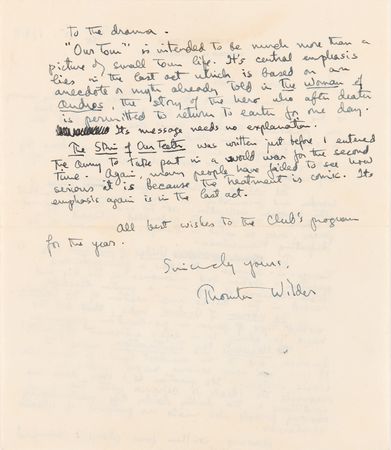 to the drama.
"Our Town" is intended to be much more than a
picture of small town life. It's central emphasis
lies in the last act which is based on an
anecdote or myth already told in The Woman of
Andros, the story of the hero who after death
is permitted to return to earth for one day.
Its message needs no explanation.
The Skin of Our Teeth was written just before I entered
the Army to take part in a world war for the second
time. Again, many people have failed to see how
serious it is because the treatment is comic. Its
emphasis again is in the last act.
All best wishes to the Club's program
for the year.
Sincerely yours,
Thornton Wilder